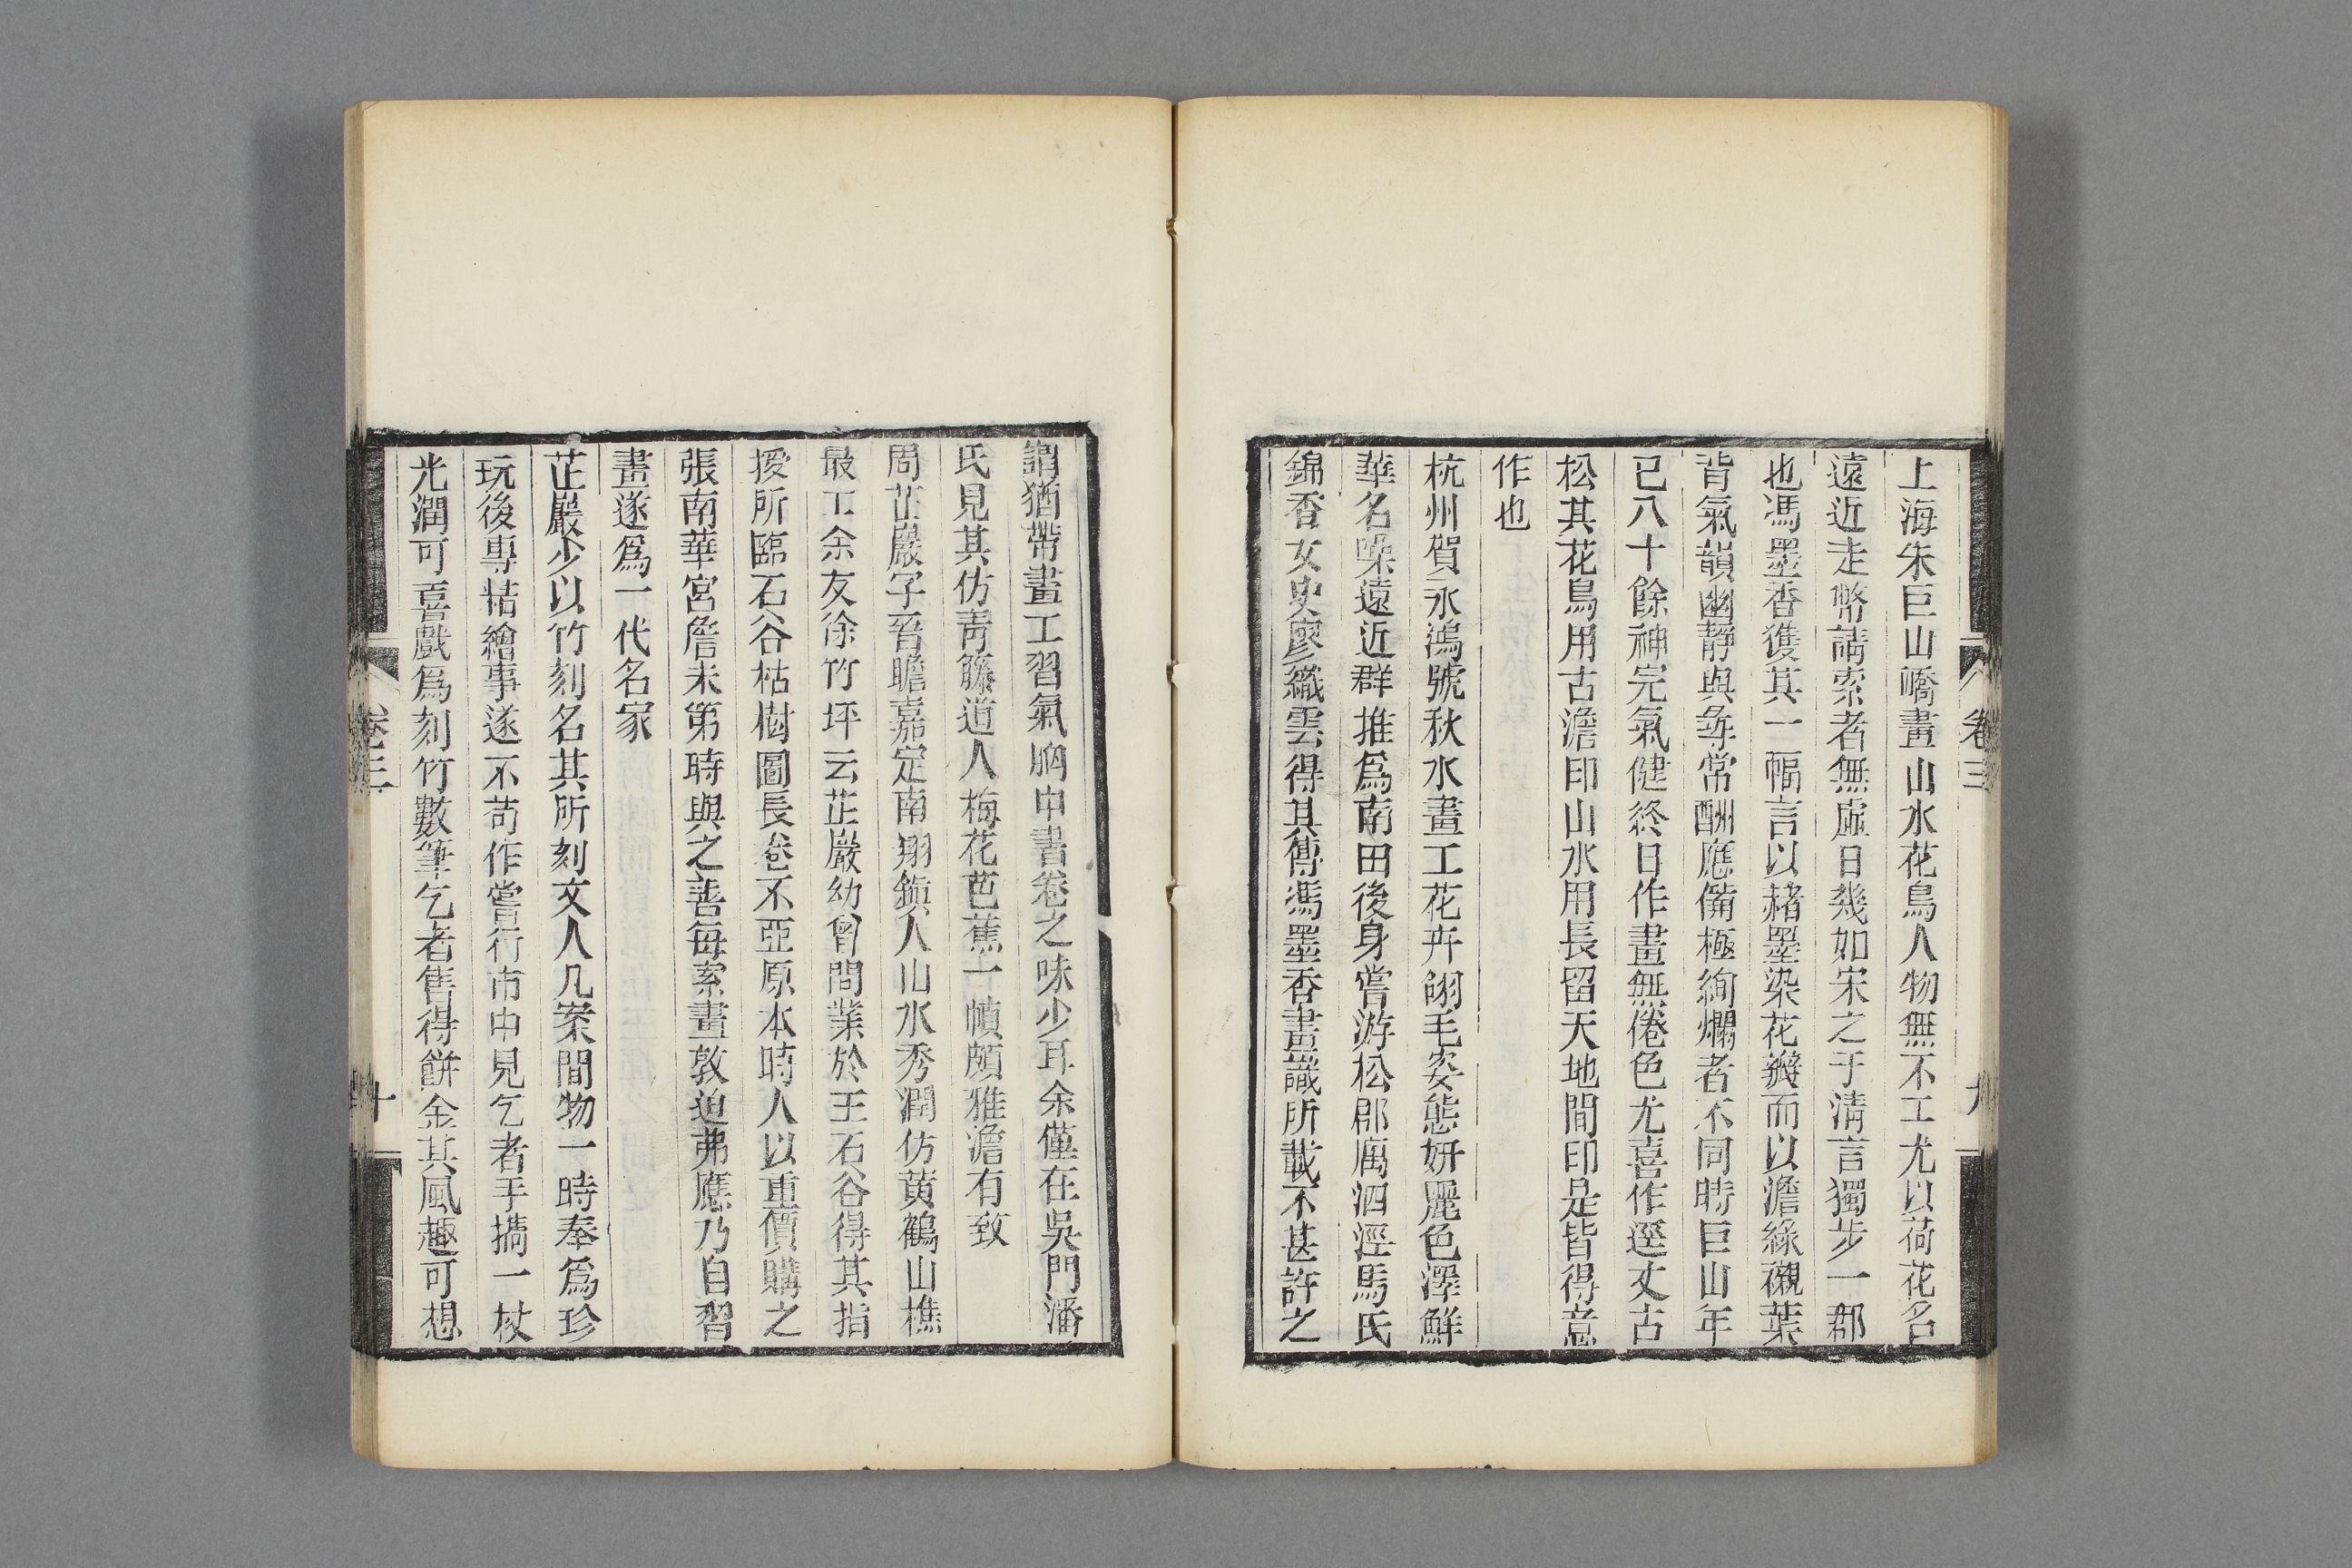 上海朱巨山嶠畫山水花鳥人物無不工尤以荷花名
遠近走幣請索者無虛日幾如宋之于清言獨步一郡
也馮墨香獲其一幅言以赭墨染花瓣而以澹綠襯葉
背氣韻幽靜與尋常酬應備極絢爛者不同時巨山年
已八十餘神完氣健終日作畫無倦色尤喜作逕丈古
松其花鳥用古澹印山水用長留天地間印是皆得意
作也
杭州賀永鴻號秋水畫工花卉翎毛姿態妍麗色澤鮮
華名噪遠近群推爲南田後身嘗游松郡寓泗涇馬氏
錦香女史廖織雲得其傳馮墨香畫識所載不甚許之
卷三
九
謂猶帶畫工習氣胸中書卷之味少耳余僅在吳門潘
氏見其仿靑籐道人梅花芭蕉一幀頗雅澹有致
周芷巖字晉瞻嘉定南翔鎭人山水秀潤仿黃鶴山樵
最工余友徐竹坪云芷巖幼曾問業於王石谷得其指
授所臨石谷枯樹圖長卷不亞原本時人以重價購之
張南華宮詹未第時與之善每索畫敦迫弗應乃自習
畫遂爲一代名家
芷巖少以竹刻名其所刻文人几案間物一時奉爲珍
玩後專精繪事遂不苟作嘗行市中見乞者手攜一杖
光潤可喜戲爲刻竹數筆乞者售得餅金其風趣可想
卷三
十